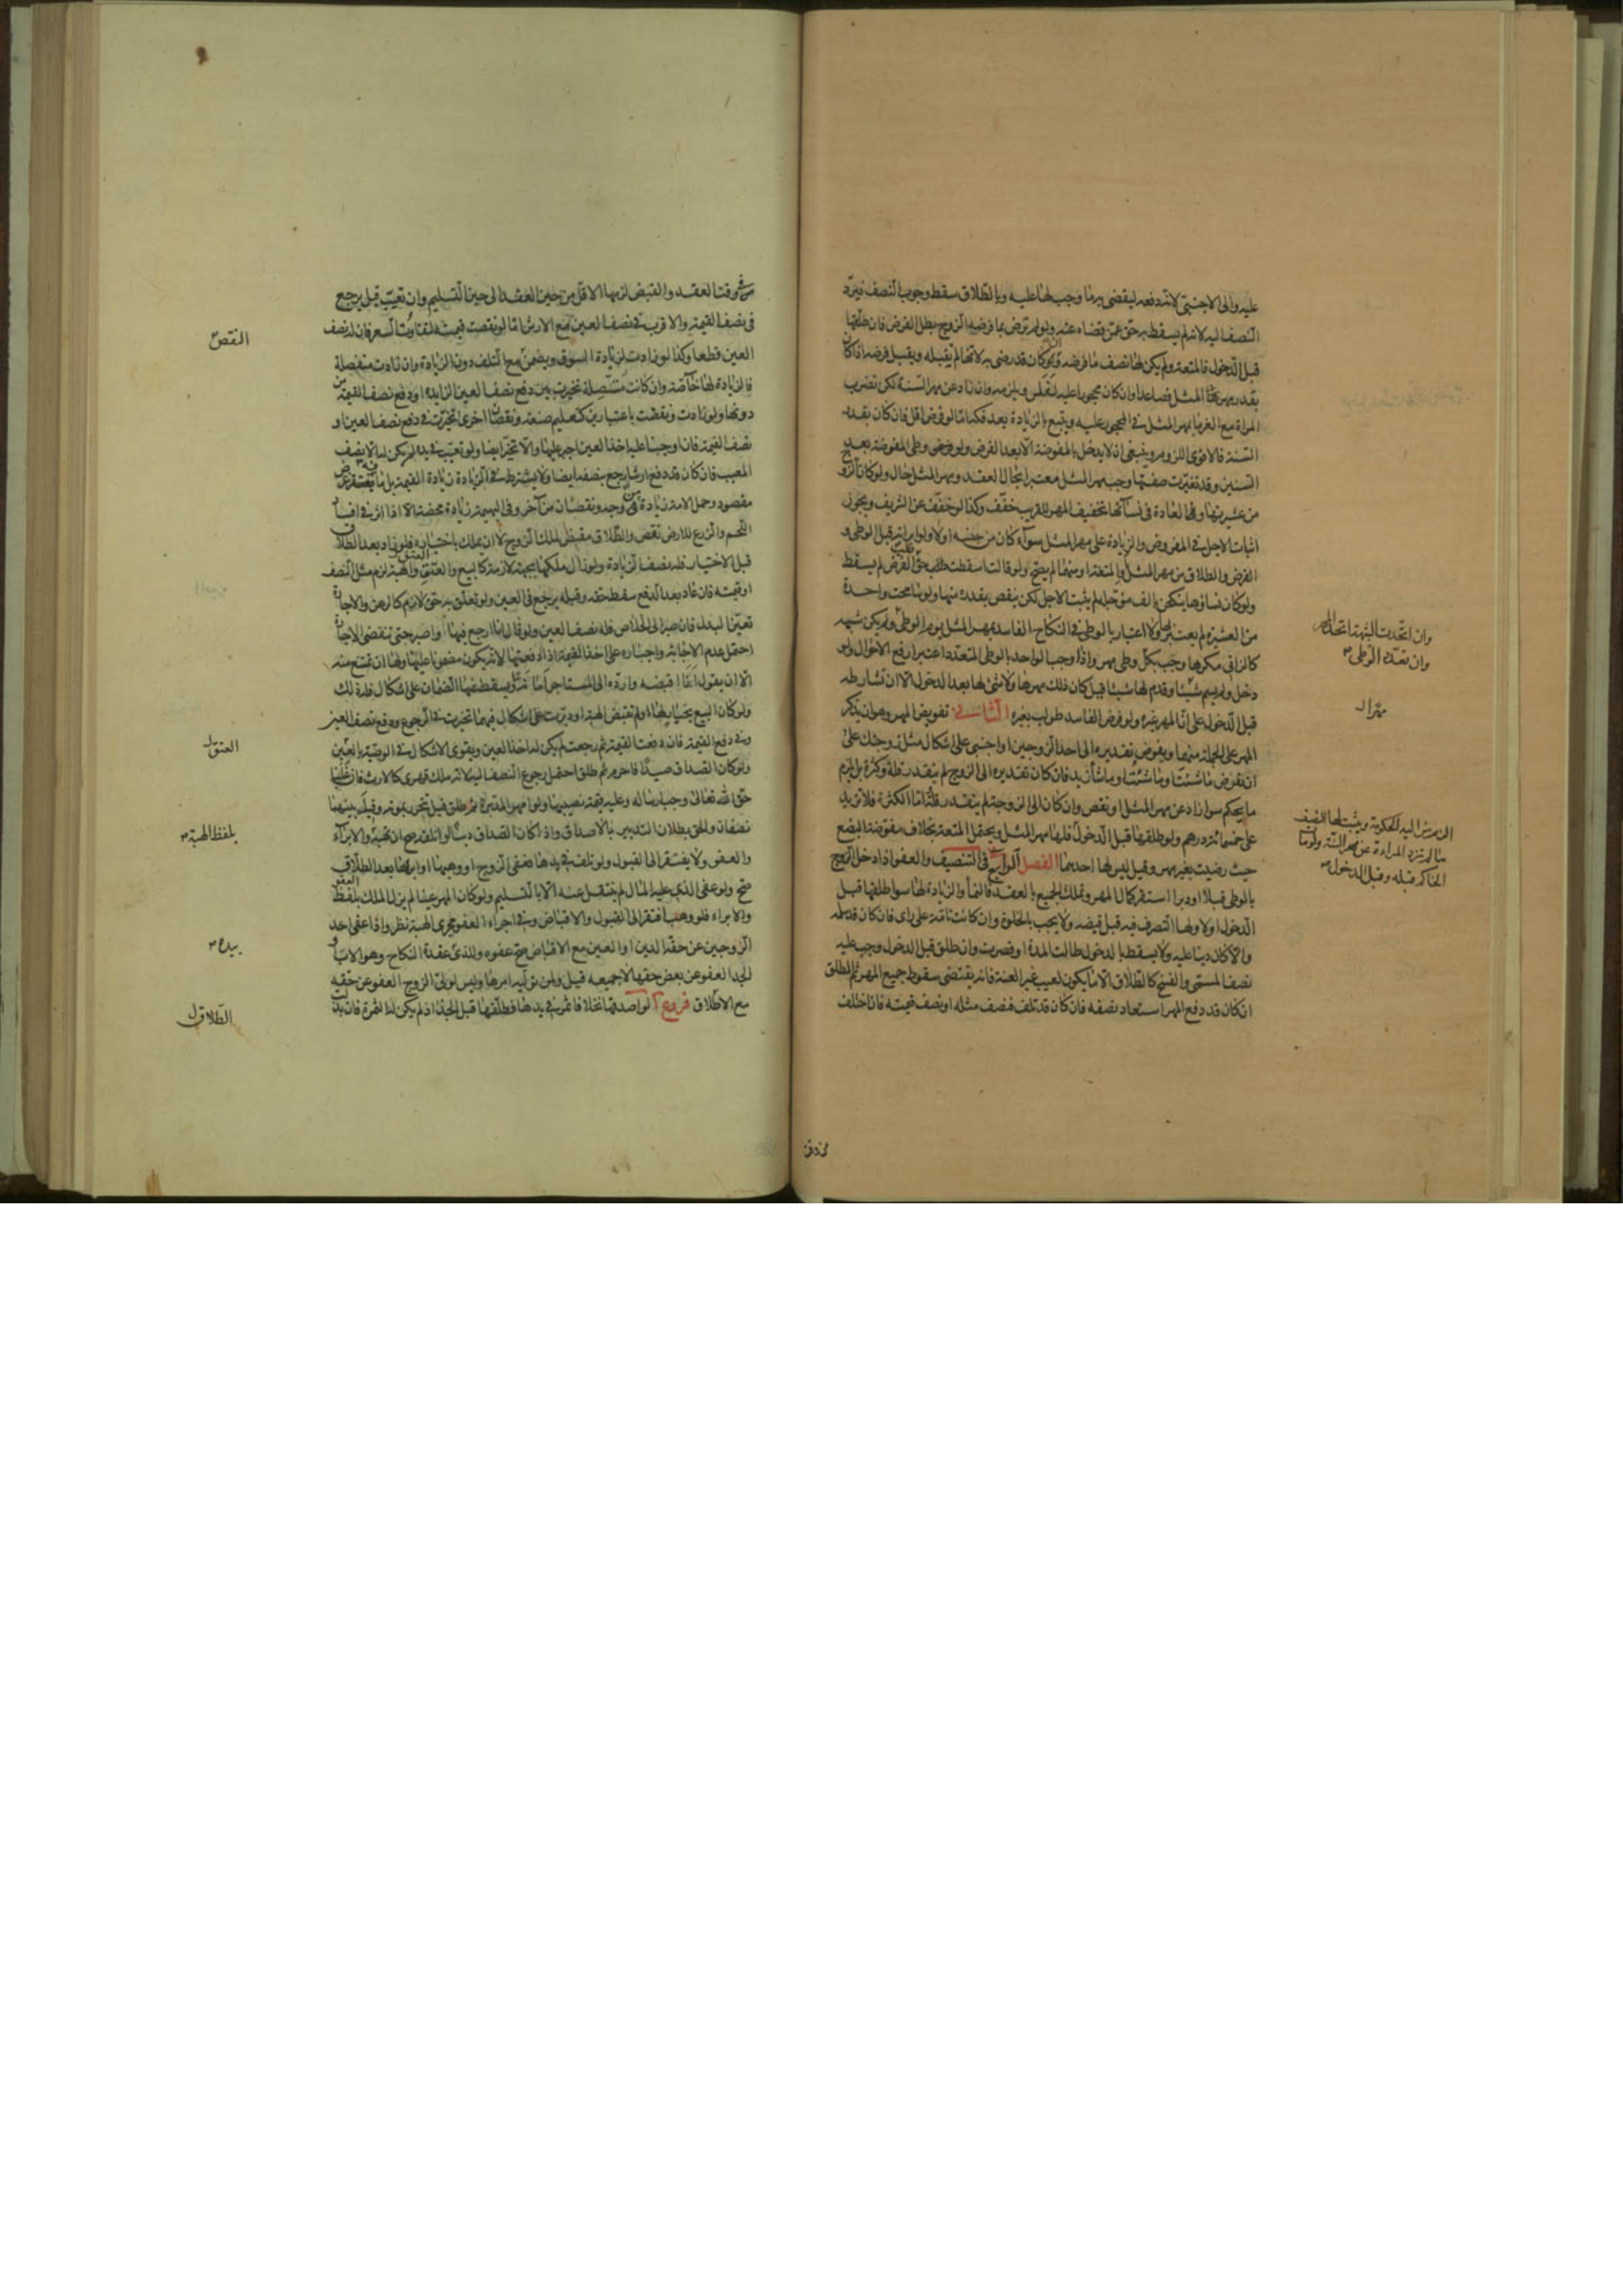 عليه والى الاجنبى لانه دفعه ليقضى به ما وجب لها عليه وبالطلاق سقط وجوب النصف فيرد
النصف اليه لانه لم يسقط به حق عمن قضاه عنه ولو لم ترض بما فرضه الزوج بطل الفرض فان طلقها
قبل الدخول فالمتعة ولم يكن لها نصف ما فرضه وان كان قد رضى به لانها لم تقبله ويقبل فرضه اذا كان
بقدر مهر المثل فصاعدا وان كان محجورا عليه لفلس ويلزمه وان زاد عن مهر السنة لكن تضرب
المراة مع الغرماء بمهر المثل فى المحجور عليه ويتبع بالزيادة بعد فكه اما لو فرض اقل فان كان بقدر
السنة فالاقوى اللزوم وينبغى ان لا يدخل بالمفوضة الا بعد الفرض ولو وطى المفوضة بعد
السنين وقد تغيرت صفتها وجب مهر المثل معتبرا بحال العقد ومهر المثل حال ولو كان الزوج
من عشيرتها وفى العادة فى نسائها تخفيف المهر للقريب خفف وكذا لو خفف عن الشريف ويجوز
اثبات الاجل فى المفروض والزيادة على مهر المثل سواء كان من جنسه او لا ولو ابراته قبل الوطى و
الفرض والطلاق من مهر المثل او المتعة او منهما لم يصح ولو قالت اسقطت طلب حق الفرض لم يسقط
ولو كان نساؤها ينكحن بالف مؤجلة لم يثبت الاجل لكن ينقص بقدره منها ولو سامحت واحدة
من العشيرة لم يعتبر بها ولا اعتبار بالوطى فى النكاح الفاسد بمهر المثل يوم الوطى ولم يكن شبهه
كالزانى مكرها وجب بكل وطى مهر واذا وجب الواحد بالوطى المتعدد اعتبر ارفع الاحوال ولو
دخل ولم يسم شيئا وقدم لها شيئا قيل كان ذلك مهرها ولا شئ لها بعد الدخول الا ان تشارطه
قبل الدخول على ان المهر غيره ولو فرض الفاسد طولب بغيره الثانى تفويض المهر وهو ان يذكر
المهر على الجملة منهما ويفوض تقديره الى احد الزوجين او اجنبى على اشكال مثل زوجتك على
ان تفرض ما شئت او ما شئت او ما شاء زيد فان كان تقديره الى الزوج لم يتقدر قلة وكثرة بل يلزم
ما يحكم سواء زاد عن مهر المثل او نقص وان كان الى الزوجة لم يتقدر قلة اما الكثرة فلا تزيد
على خمسمائة درهم ولو طلقها قبل الدخول فلها مهر المثل ويحتمل المتعة بخلاف مفوضة البضع
حيث رضيت بغير مهر وقيل ليس لها احدهما الفصل الرابع فى التنصيف والعفو اذا دخل الزوج
بالوطى قبلا او دبرا استقر كمال المهر وتملك الجميع بالعقد فالنماء والزيادة لها سواء طلقها قبل
الدخول او لا ولها التصرف فيه قبل قبضه ولا يجب بالخلوة وان كانت تامة على راى فان كان قد سلمه
والا كان دينا عليه ولا يسقط بالدخول طالت المدة او قصرت وان طلق قبل الدخول وجب عليه
نصف المسمى والفسخ كالطلاق الا ما يكون لعيب غير العنة فانه يقتضى سقوط جميع المهر ثم المطلق
ان كان قد دفع المهر استعاد نصفه فان كان قد تلف فنصف مثله او نصف قيمته فان اختلف
وان اتحدت الشبهة اتحد المهر
وان تعدد الوطى
الزمت اليه الحكومة ويثبت لها النصف
ما لم تزد المراءة عن مهر السنة ولو مات
الحاكم قبله وقبل الدخول
وقت العقد والقبض لزمها الاقل من حين العقد الى حين التسليم وان تعيب قيل يرجع
فى نصف القيمة والاقرب فى نصف العين مع الارش اما لو نقصت قيمته لتفاوت السعر فان له نصف
العين قطعا وكذا لو زادت لزيادة السوق ويضمن مع التلف دون الزيادة وان زادت منفصلة
فالزيادة لها خاصة وان كانت متصلة تخيرت بين دفع نصف العين الزايدة او دفع نصف القيمة من
دونها ولو زادت ونقصت باعتبارين كتعليم صنعة ونقصان اخرى تخيرت فى دفع نصف العين او
نصف القيمة فان اوجبنا عليه اخذ العين اجبر عليها والا تخير ايضا ولو تعيبت فى يده لم يكن له الا نصف
المعيب فان كان قد دفع ارشا رجع بنصفه ايضا ولا يشترط فى الزيادة زيادة القيمة بل ما فيه غرض
مقصود وحمل الامة زيادة من وجه ونقصان من اخر وفى البهيمة زيادة محضة الا اذا اثر فى افساد
اللحم والزرع للارض نقص والطلاق مقتض لملك الزوج لا ان يملك باختياره فلو زاد بعد الطلاق
قبل الاختيار فله نصف الزيادة ولو زال ملكها بجهة لازمة كالبيع والعتق والهبة لزم مثل النصف
او قيمته فان عاد بعد الدفع سقط حقه وقبله يرجع فى العين ولو تعلق به حق لازم كالرهن والاجارة
تعين البدل فان صبر الى الخلاص فله نصف العين ولو قال انا ارجع فيها واصبر حتى تنقضى الاجارة
احتمل عدم الاجابة واجباره على اخذ القيمة اذا دفعتها لانه يكون مضمونا عليها ولها ان تمتنع منه
الا ان يقول انا اقبضه وارده الى المستاجر امانة او يسقط عنها الضمان على اشكال فله ذلك
ولو كان البيع بخيار لها او لم تقبض الهبة او دبرت على اشكال فيهما تخيرت فى الرجوع ودفع نصف العين
وفى دفع القيمة فان دفعت القيمة ثم رجعت لم يكن له اخذ العين ويقوى الاشكال فى الوصية بالعين
ولو كان الصداق صيدا فاحرم ثم طلق احتمل رجوع النصف اليه لانه ملك قهرى كالارث فان غلبنا
حق الله تعالى وجب ارساله وعليه قيمة نصيبها ولو امهر المدبرة ثم طلق قيل تتحرر بموته وقيل بينهما
نصفان والحق بطلان التدبير بالاصداق واذا كان الصداق دينا او اتلفته صح ان تهبه والابراء
والعفو ولا يفتقر الى القبول ولو تلف فى يدها فعفى الزوج او وهبها او ابراها بعد الطلاق
صح ولو عفى الذى عليه المال لم ينتقل عنه الا بالتسليم ولو كان المهر عينا لم يزل الملك بلفظ العفو
والابراء فلو وهب افتقر الى القبول والاقباض وفى اجراء العفو مجرى الهبة نظر واذا عفى احد
الزوجين عن حقه الدين او العين مع الاقباض صح عفوه وللذى عقدة النكاح وهو الاب او
الجد العفو عن بعض حقها لا جميعه قيل ولمن توليه امرها وليس لولى الزوج العفو عن حقه
مع الاطلاق فروع ا لو اصدقها نخلا فاثمر فى يدها فطلقها قبل الجذاذ لم يكن له الثمرة فان بذلت
النقص
العتق
بلفظ الهبة
بيده
الطلاق